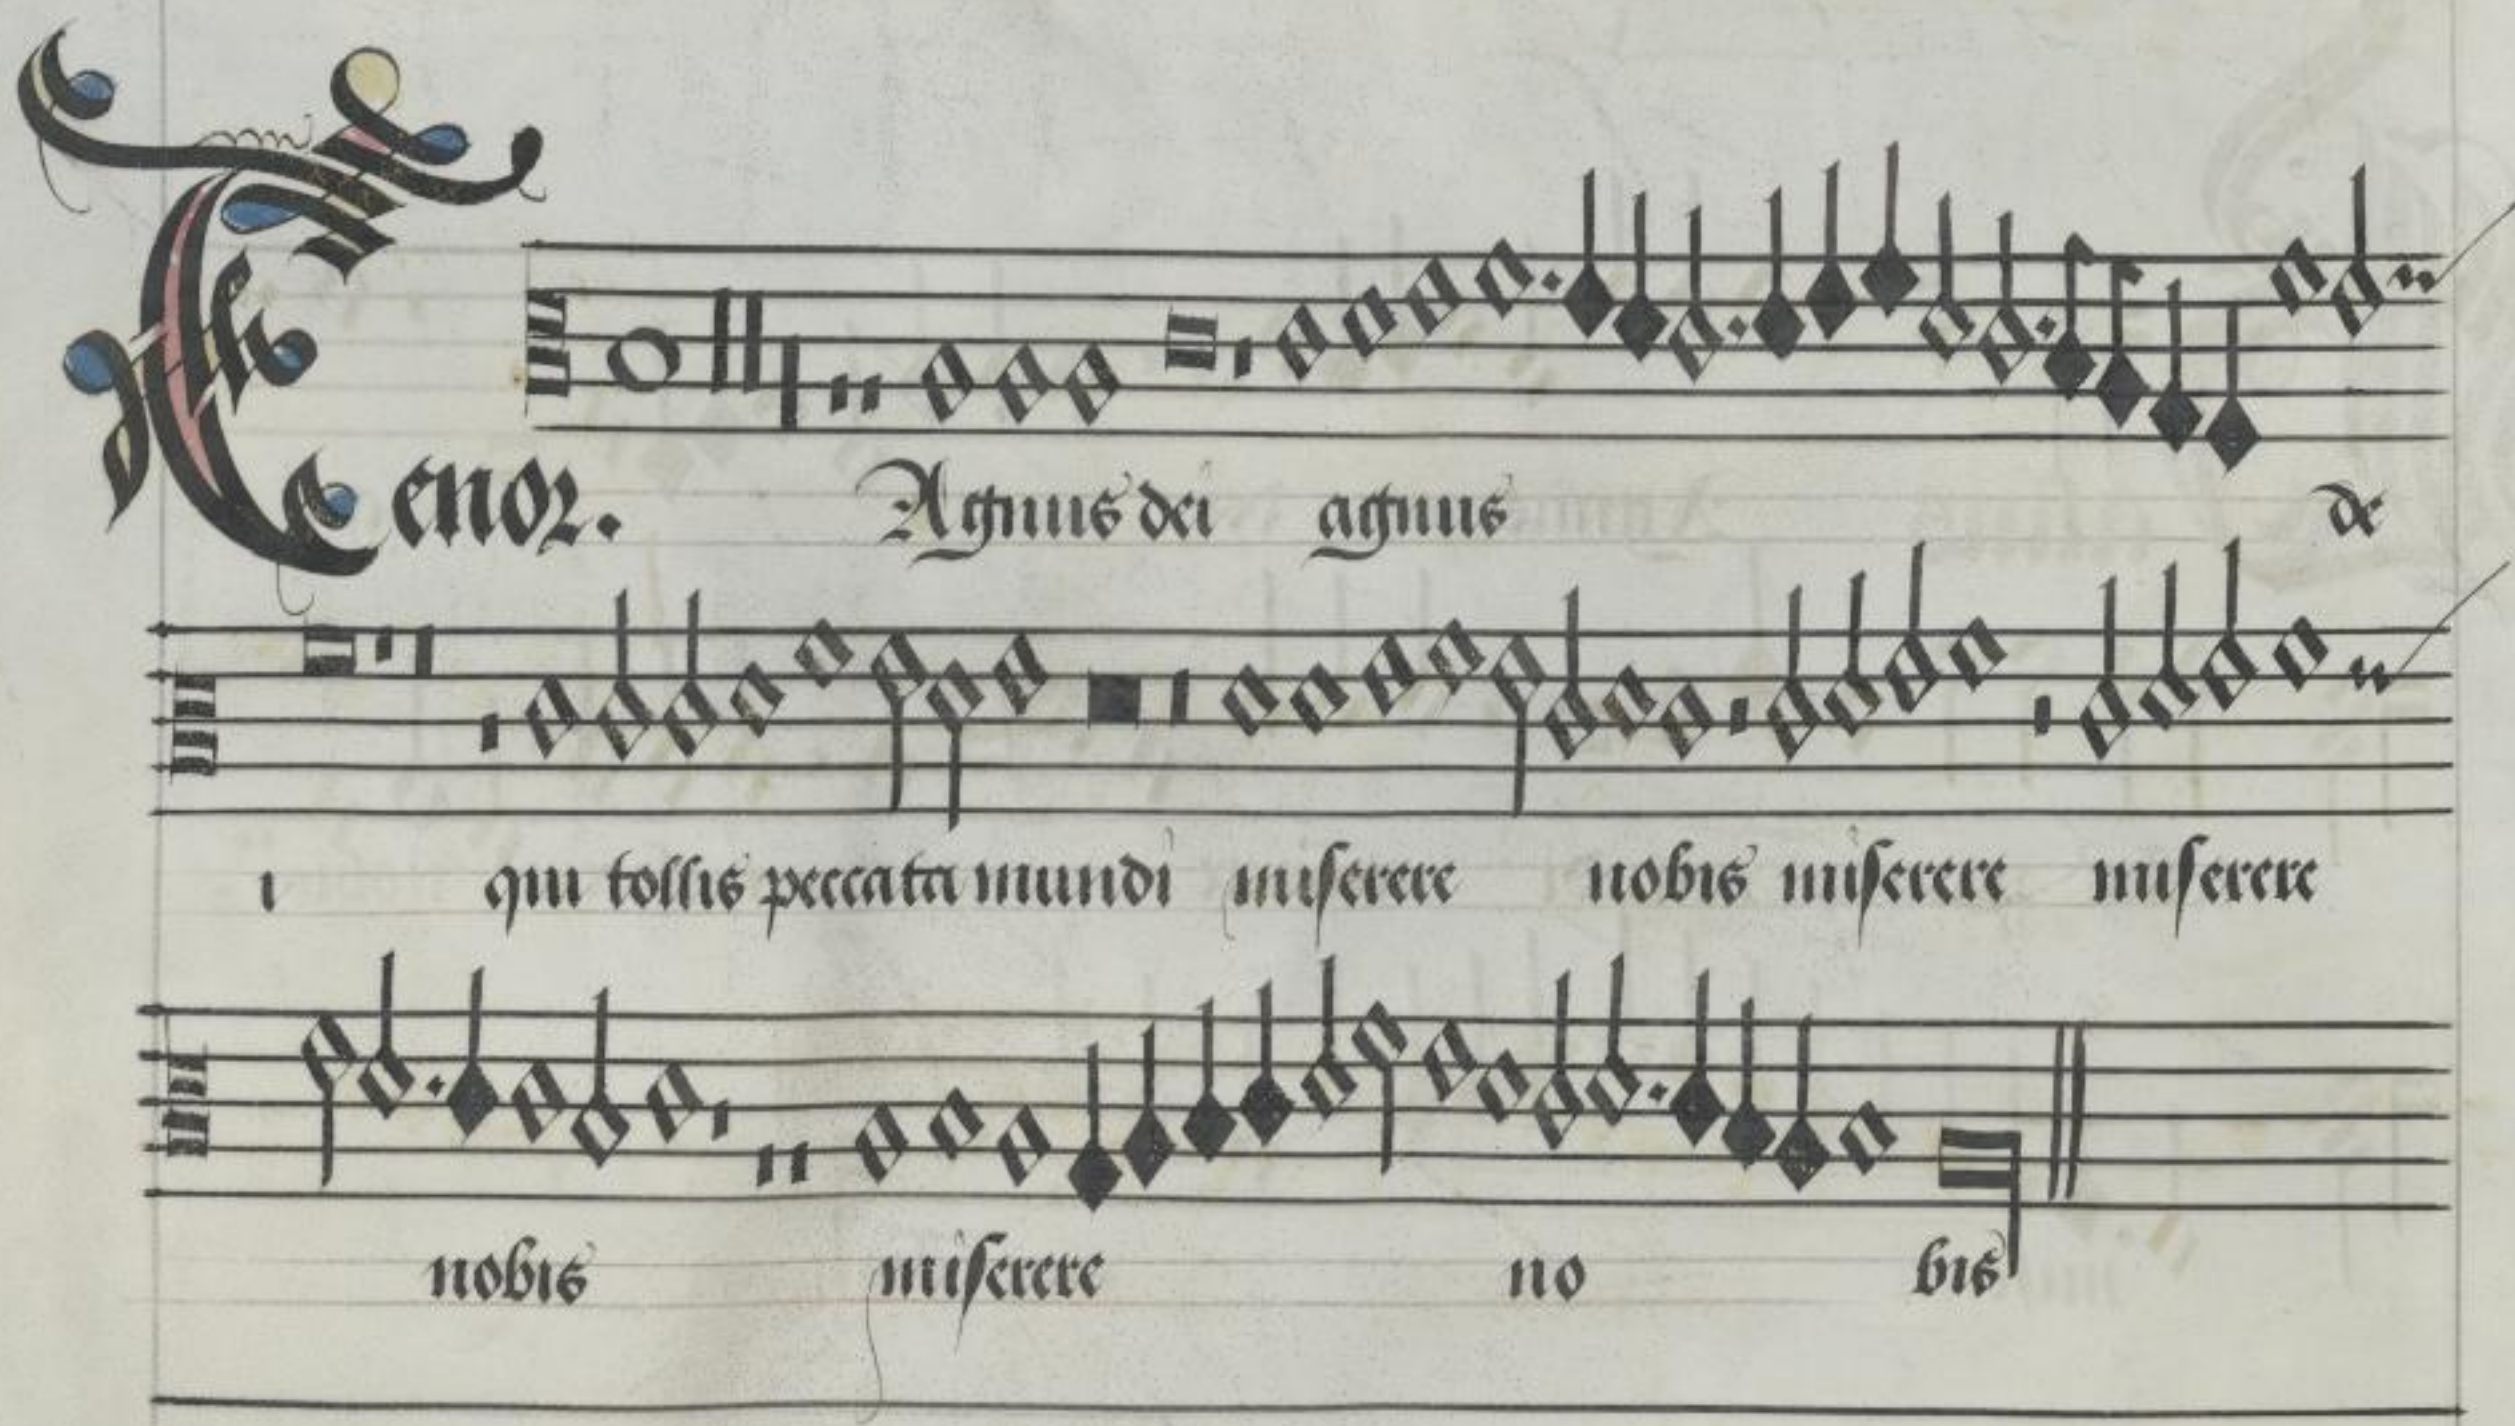 Tenor. Agnus dei agnus de
i qui tollis peccata mundi miserere nobis miserere miserere
nobis miserere no bis